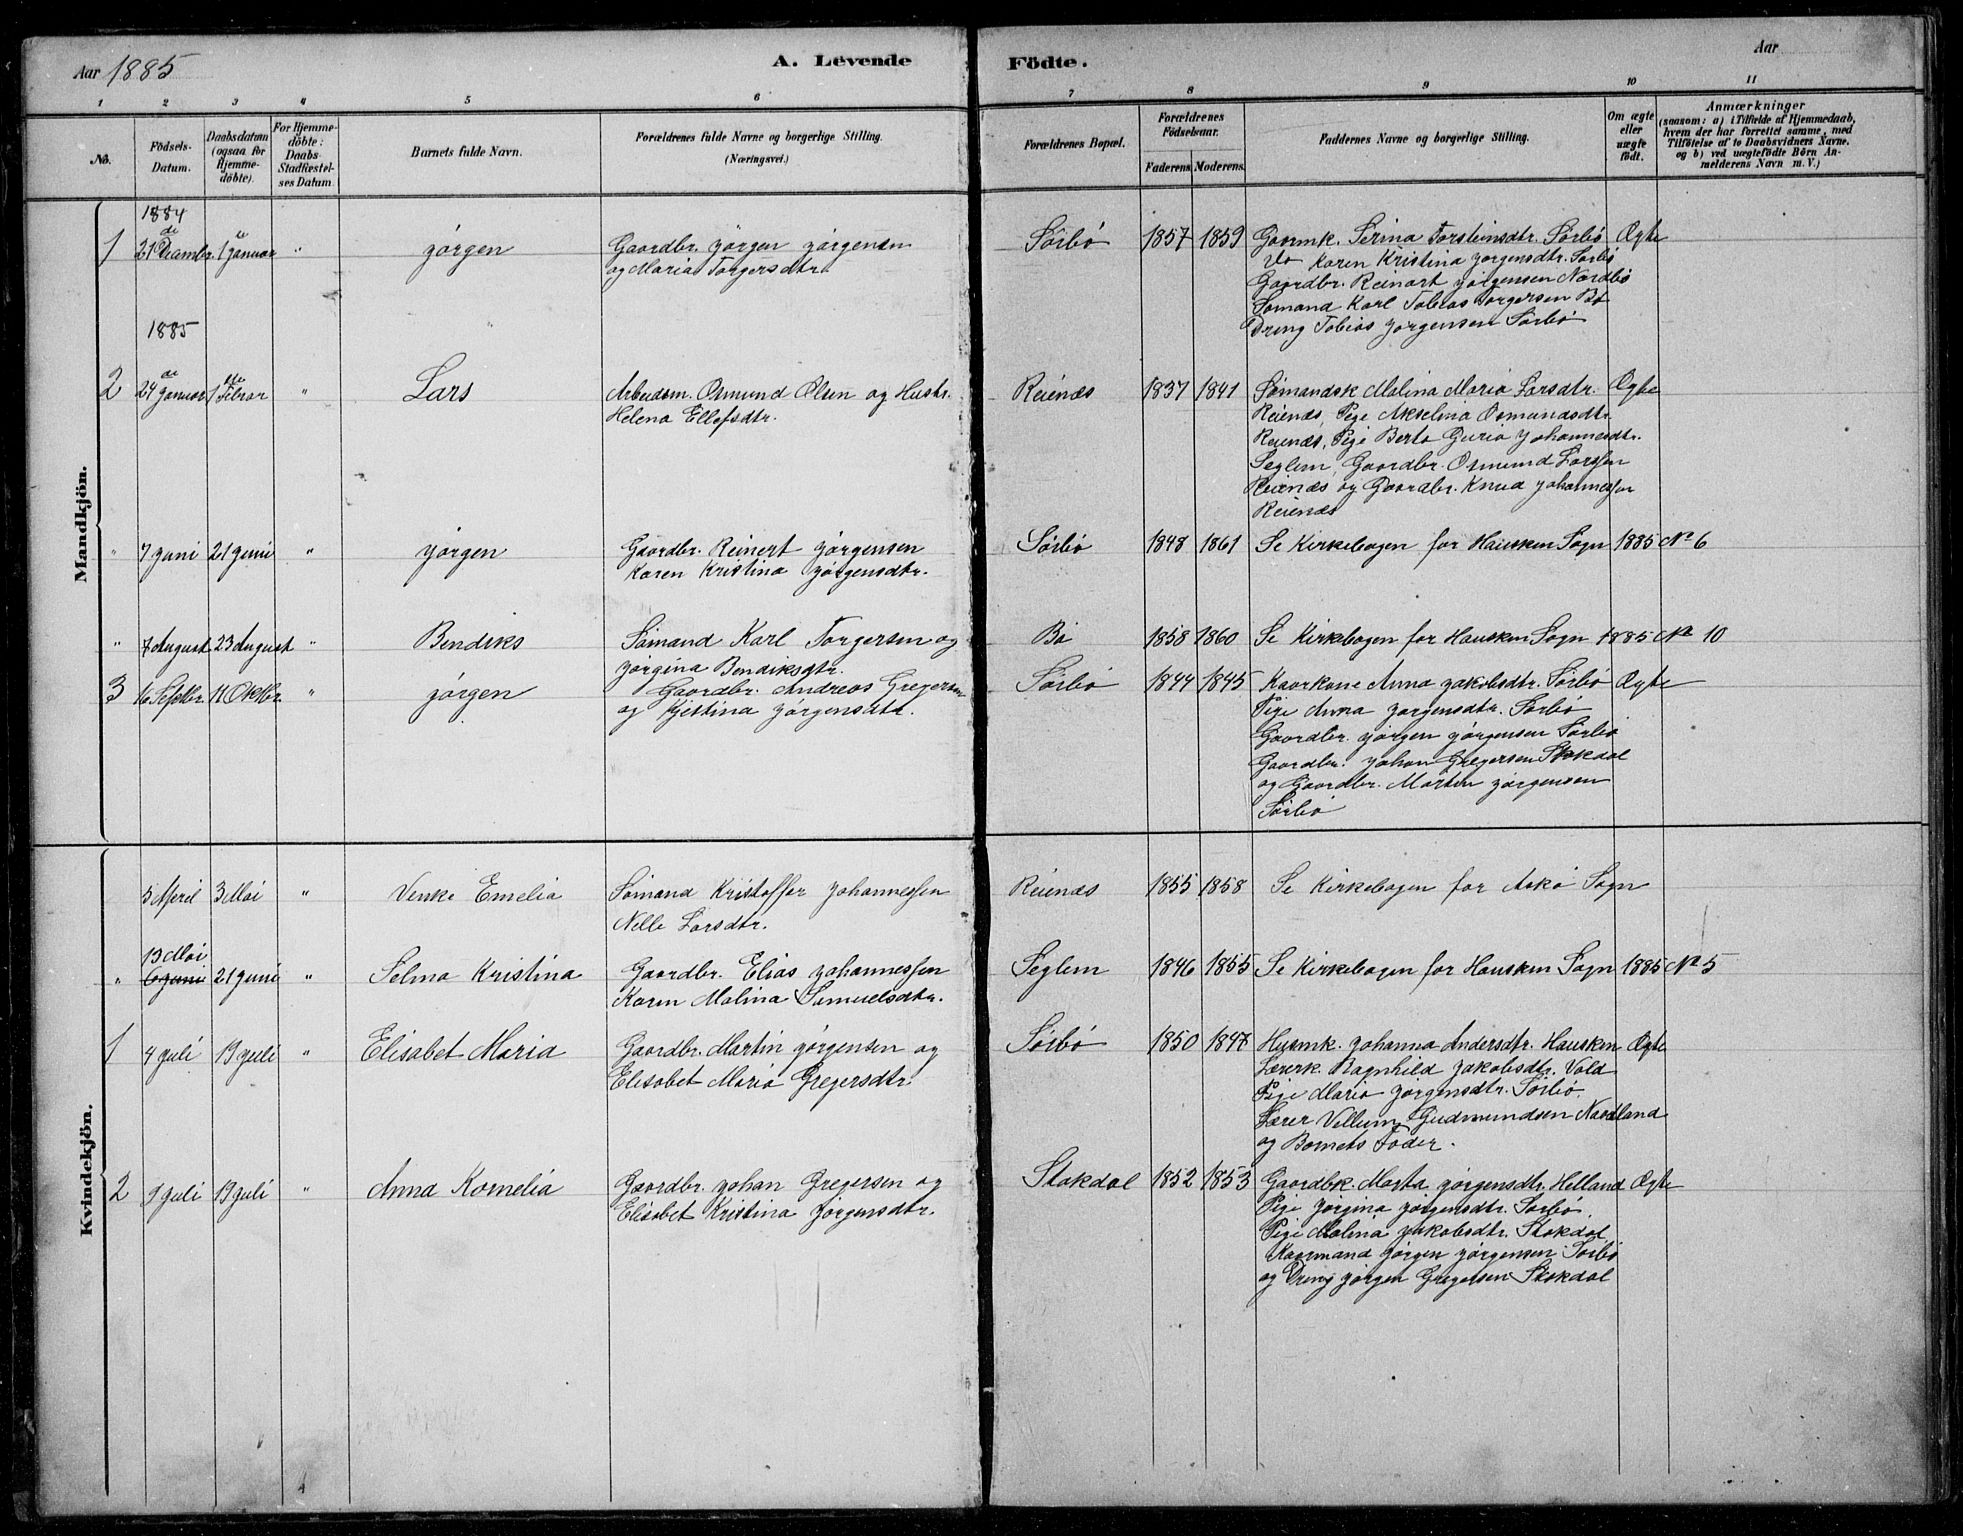 Aar 1885
A. Levende
Födte.
Aar
1 2 3 4 5 6 7 8 9 10 11
No.
Födsels-
Datum.
Daabsdatum
(ogsaa for
Hjemme-
döbte).
For Hjemme-
döbte:
Daabs-
Stadfæstel-
ses Datum.
Barnets fulde Navn.
Forældrenes fulde Navne og borgerlige Stilling.
(Næringsvei.)
Forældrenes Bopæl.
Forældrenes
Födselsaar.
Faderens. Moderens.
Faddernes Navne og borgerlige Stilling.
Om ægte
eller
uægte
födt.
Anmærkninger
(saasom: a) i Tilfælde af Hjemmedaab,
hvem der har forrettet samme, med
Tilföielse af to Daabsvidners Navne.
og b) ved uægtefödte Börn An-
melderens Navn m. V.)
Mandkjön.
1884
1 21de December 1de Januar " Jörgen
Gaardbr. Jörgen Jörgensen
og Maria Torgersdtr.
Sörbö 1857 1859
Gaarmk. Serina Torsteinsdtr. Sörbö Ægte
do Karen Kristina Jörgensdtr. Sörbö
Gaardbr. Reinart Jörgensen Nordbö
Sömand Karl Tobias Torgersen Bö
Dreng Tobias Jörgensen Sörbö
1885
2 24de Januar 1ste Febroar " Lars
Arbeidsm. Osmund Olsen og Hustr.
Helena Ellefsdtr.
Reienæs 1837 1841
Sömandsk Malina Maria Larsdtr. Ægte
Reienæs, Pige Akselina Osmundsdtr.
Reienæs, Pige Berta Guria Johannesdtr.
Seglem, Gaardbr. Osmund Larssen
Reienæs og Gaardbr. Knud Johannessen
Reienæs
" 7 Juni 21 Juni " Jörgen
Gaardbr. Reinert Jörgensen
Karen Kristina Jörgensdtr.
Sörbö 1848 1861 Se Kirkebogen for Hausken Sogn 1885 No 6
" 7 August 23 August " Bendiks
Sömand Karl Torgersen og
Jörgina Bendiksdtr.
Bö 1858 1860 Se Kirkebogen for Hausken Sogn 1885 No 10
3 16 Septbr. 11 Oktbr. " Jörgen
Gaardbr. Andreas Gregersen
og Kjestina Jörgensdtr.
Sörbö 1844 1845
Kaarkone Anna Jakobsdtr. Sörbö Ægte
Pige Anna Jörgensdtr. Sörbö
Gaardbr. Jörgen Jörgensen Sörbö
Gaardbr. Johan Gregersen Stokdal
og Gaardbr. Morten Jörgensen
Sörbö
Kvindekjön.
5 April 3 Mai " Venke Emelia
Sömand Kristoffer Johannessen
Nelle Larsdtr.
Reienæs 1855 1858 Se Kirkebogen for Askö Sogn
13 Mai
" 6 Juni 21 Juni " Selma Kristina
Gaardbr. Elias Johannessen
Karen Malina Samuelsdtr.
Seglem 1846 1855 Se Kirkebogen for Hausken Sogn 1885 No 5
1 4 Juli 19 Juli " Elisabet Maria
Gaardbr. Martin Jörgensen og
Elisabet Maria Gregersdtr.
Sörbö 1850 1847
Husmk. Johanna Andersdtr. Hausken Ægte
Lærerk. Ragnhild Jakobsdtr. Vold
Pige Maria Jörgensdtr. Sörbö.
Lærer Vellum Gudmundsen Nordland
og Barnets Fader.
2 9 Juli 19 Juli " Anna Kornelia
Gaardbr. Johan Gregersen og
Elisabet Kristina Jörgensdtr.
Stokdal 1852 1853
Gaardbk. Marta Jörgensdtr. Helland Ægte
Pige Jörgina Jörgensdtr. Sörbö.
Pige Malina Jakobsdtr. Stokdal.
Kaarmand Jörgen Jörgensen Sörbö
og Dreng Jörgen Gregersen Stokdal